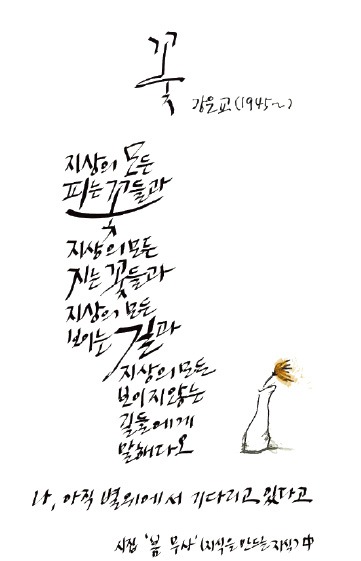 꽃
강은교(1945~)
지상의 모든
피는 꽃들과
지상의 모든
지는 꽃들과
지상의 모든
보이는 길과
지상의 모든
보이지 않는
길들에게
말해다오
나, 아직 별 위에서 기다리고 있다고
시집 '봄 무사' (지식을 만드는 지식) 中